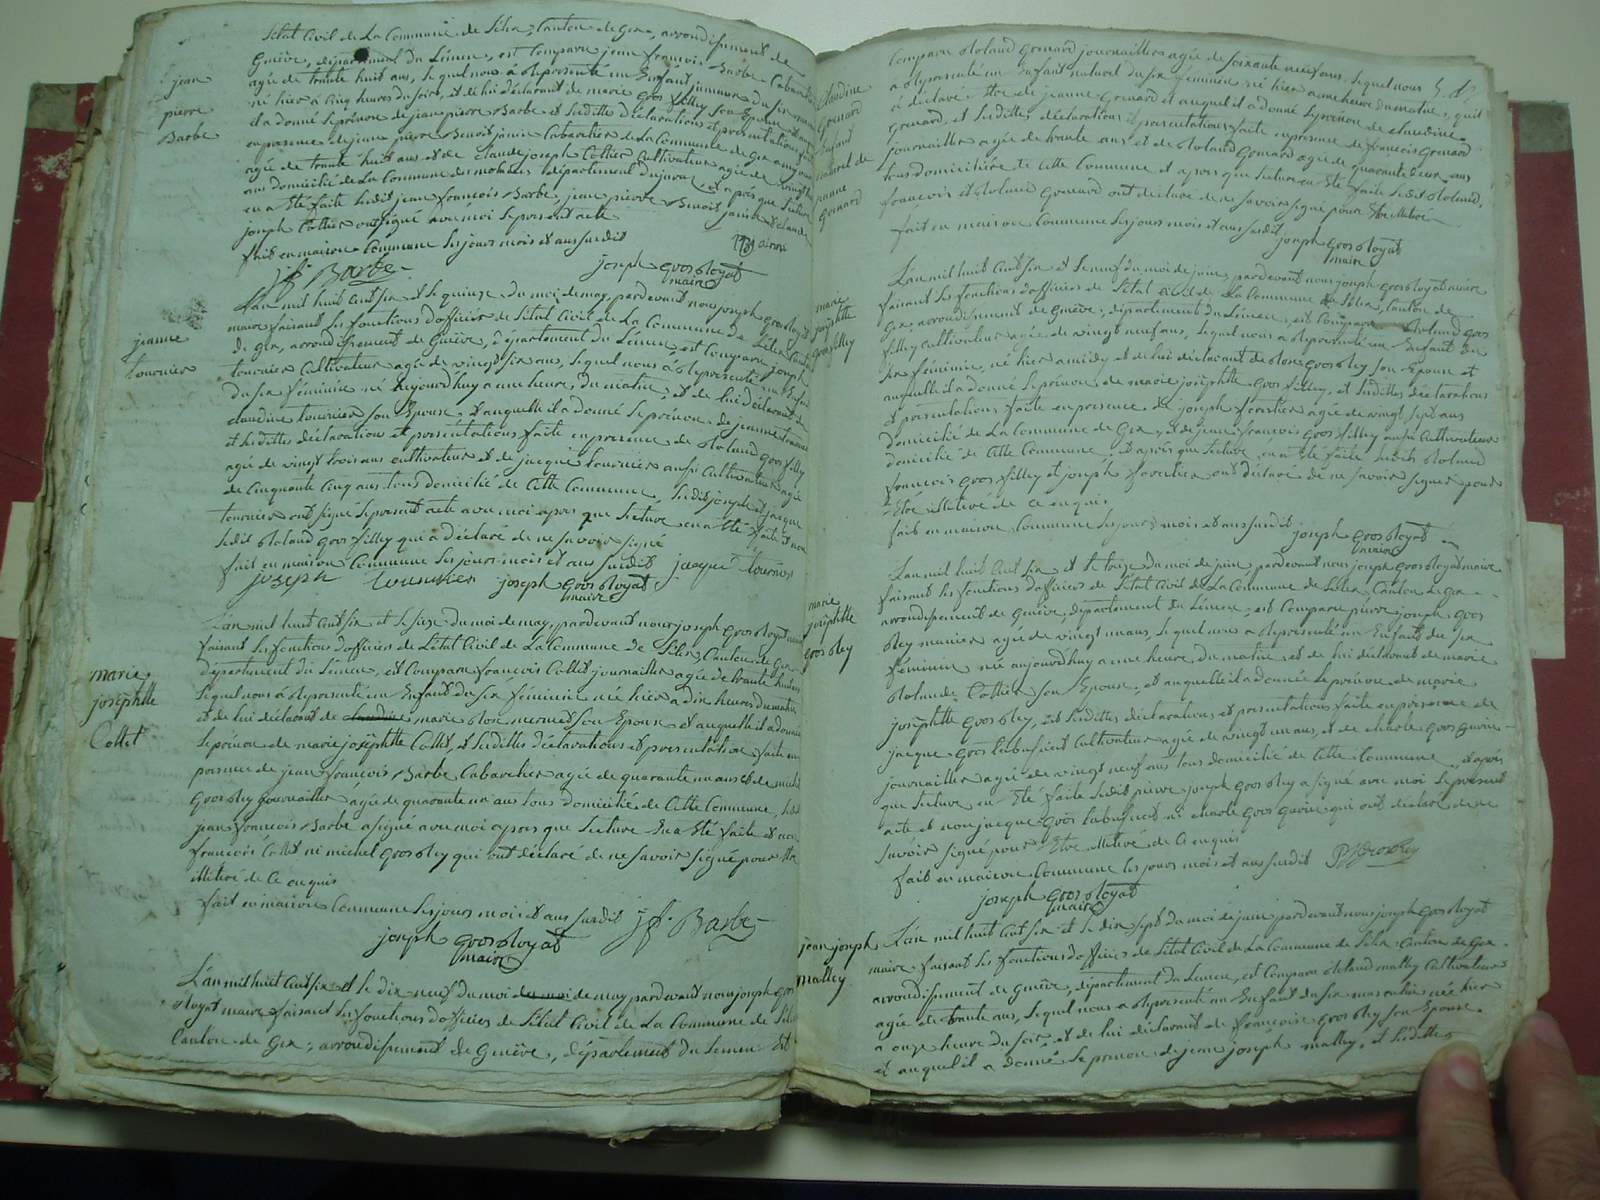 létat Civil de La Commune de Lélex, Canton de Gex, arrondissement de
Genève, département du Léman, est Comparu jean françois Barbe Cabaretier
jean
agée de trante huit ans, lequel nous à Représenté un Enfant
né hier à Cinq heures du soir, et de lui déclarant de marie gros filley son Epouse
pierre
il a donné le prénom de jean pierre Barbe et lesdittes déclarations et présentations
Barbe
en presence de jean pierre Benoit janin Cabaretier de La Commune de Gex
agée de trante huit ans et de Claude joseph Cottier Cultivateur agée de vingt
ans domicilié de La Commune des département du jura, et après que Lecture
en a Eté faite ledit jean françois Barbe, jean pierre Benoit janin et claude
joseph Cottier ont signé avec moi le present acte
fait en maison Commune les jours mois et ans susdit
jf. Barbe
joseph gros Royat
maire
L'an mil huit Cent six et le quinze du moi de may, pardevant nous joseph gros Royat
maire faisant les fonctions d'officier de létat Civil de La Commune de Lélex Canton
jeanne
de gex, arrondissement de Genève, département du Léman est Comparu joseph
tournier
tournier Cultivateur agée de vingt six ans, lequel nous à Représenté un Enfant
du sex féminin né aujourd'huy a une heure, du matin, et de lui déclarant de
claudine tournier son Epouse, et auquelle il a donné le prénom de jeanne tournier
et lesdittes déclaration et présentations faite en presence de Roland gros filley
agée de vingt trois ans cultivateur et de jacque tournier aussi Cultivateur agée
de Cinquante Cinq ans tous domicilié de Cette Commune, lesdit joseph et jacque
tournier ont signé le present acte avec moi apres que Lecture en a Eté faite et non
ledit Roland gros filley qui à déclaré de ne savoir signé
fait en maison Commune les jours mois et ans susdit jacque Tournier
joseph tournier joseph gros Royat
maire
L'an mil huit Cent six et le seize du moi de may, pardevant nous joseph gros Royat maire
faisant les fonctions d'officier de létat Civil de La Commune de Lélex, Canton de Gex
département du Léman, est Comparu françois Collet journaillier agée de trante huit ans
marie
lequel nous à Représenté un Enfant du sex féminin née hier a dix heures du matin
joséphtte
et de lui déclarant de marie Rose mermet son Epouse et auquelle il a donné
Collet
le prénom de marie joséphtte Collet, et lesdittes déclarations et presentations faite en
presence de jean françois Barbe Cabaretier agée de quarante un ans et de michel
gros Rey journaillier agée de quarante un ans tous domicilié de Cette Commune, ledit
jean françois Barbe a signé avec moi apres que Lecture en a Eté faite et non
françois Collet ni michel gros Rey qui ont déclaré de ne savoir signé pour Etre
illitéré de Ce enquis
fait en maison Commune les jours mois et ans susdit jf. Barbe
joseph gros Royat
maire
L'an mil huit Cent six et le dix neuf du moi de may pardevant nous joseph gros
Royat maire faisant les fonctions d'officier de létat Civil de La Commune de Lélex
Canton de Gex, arrondissement de Genève, département du Léman est
Comparu Roland Grenard journaillier agée de soixante neuf ans, lequel nous
Claudine
a Représenté un Enfant naturel du sex féminin né hier a une heure du matin, qu'il
Grenard
a déclaré Etre de jeanne Grenard et auquel il a donné le prénom de claudine
Enfant
Grenard, et lesdittes déclarations et presentations faite en presence de françois Grenard
naturel de
journaillier agée de trante ans et de Roland Grenard agée de quarante deux ans
jeanne
tous domiciliée de Cette Commune et apres que Lecture en Eté faite ledit Roland,
Grenard
françois et Roland Grenard ont déclaré de ne savoir signé pour Etre illitéré
fait en maison Commune les jours mois et ans susdit joseph gros Royat
maire
L'an mil huit Cent six et le neuf du moi de juin, pardevant nous joseph gros Royat maire
marie
faisant les fonctions d'officier de létat Civil de La Commune de Lélex, Canton de
joséphtte
Gex, arrondissement de Genève, département du Léman, est Comparu Roland gros
gros filley
filley cultivateur agée de vingt neuf ans, lequel nous a Représenté un Enfant du
sex féminin, né hier a midy et de lui déclarant de Rose gros Rey son Epouse et
auquelle il a donné le prénom de marie joséphtte gros filley, et lesdittes déclarations
et présentations faite en presence de joseph forestier agée de vingt sept ans
domicilié de La Commune de Gex, et de jean françois gros filley aussi Cultivateur
domicilié de Cette Commune, et après que Lecture en a Eté faite lesdit Roland
françois gros filley et joseph forestier ont déclaré de ne savoir signer pour
Etre illitéré de Ce enquis
fait en maison Commune les jours mois et ans susdit joseph gros Royat
maire
L'an mil huit Cent six et le treize du moi de juin pardevant nous joseph gros Royat maire
faisant les fonctions d'officier de létat Civil de La Commune de Lélex, Canton de Gex
marie
arrondissement de Genève, département du Léman, est Comparu pierre joseph gros
joséphtte
Rey agée de vingt un ans, lequel nous a Représenté un Enfant du sex
gros Rey
féminin née aujourd'huy a une heure, du matin et de lui déclarant de marie
Rolande Cottier son Epouse, et auquelle il a donnée le prénom de marie
joséphtte gros Rey, et lesdittes déclarations et presentations faite en presence de
jacque gros Cultivateur agée de vingt un ans, et de charle gros
journaillier agée de vingt neuf ans tous domicilié de Cette Commune, et après
que Lecture en Eté faite ledit pierre joseph gros Rey a signé avec moi le présent
acte et non jacque gros ni charle gros qui ont déclaré de ne
savoir signé pour Etre illitéré de Ce enquis
fait en maison Commune les jours mois et ans susdit PJ gros Rey
joseph gros Royat
maire
jean joseph
L'an mil huit Cent six et le dix sept du moi de juin pardevant nous joseph gros Royat
mathey
maire faisant les fonctions d'officier de létat Civil de La Commune de Lélex Canton de Gex
arrondissement de Genève, département du Léman, est Comparu Roland mathey Cultivateur
agée de trante ans, lequel nous a Représenté un Enfant du sex masculin née hier
a onze heure du soir et de lui déclarant de françoise gros Rey son Epouse
et auquel il a donné le prénom de jean joseph mathey, et lesdittes